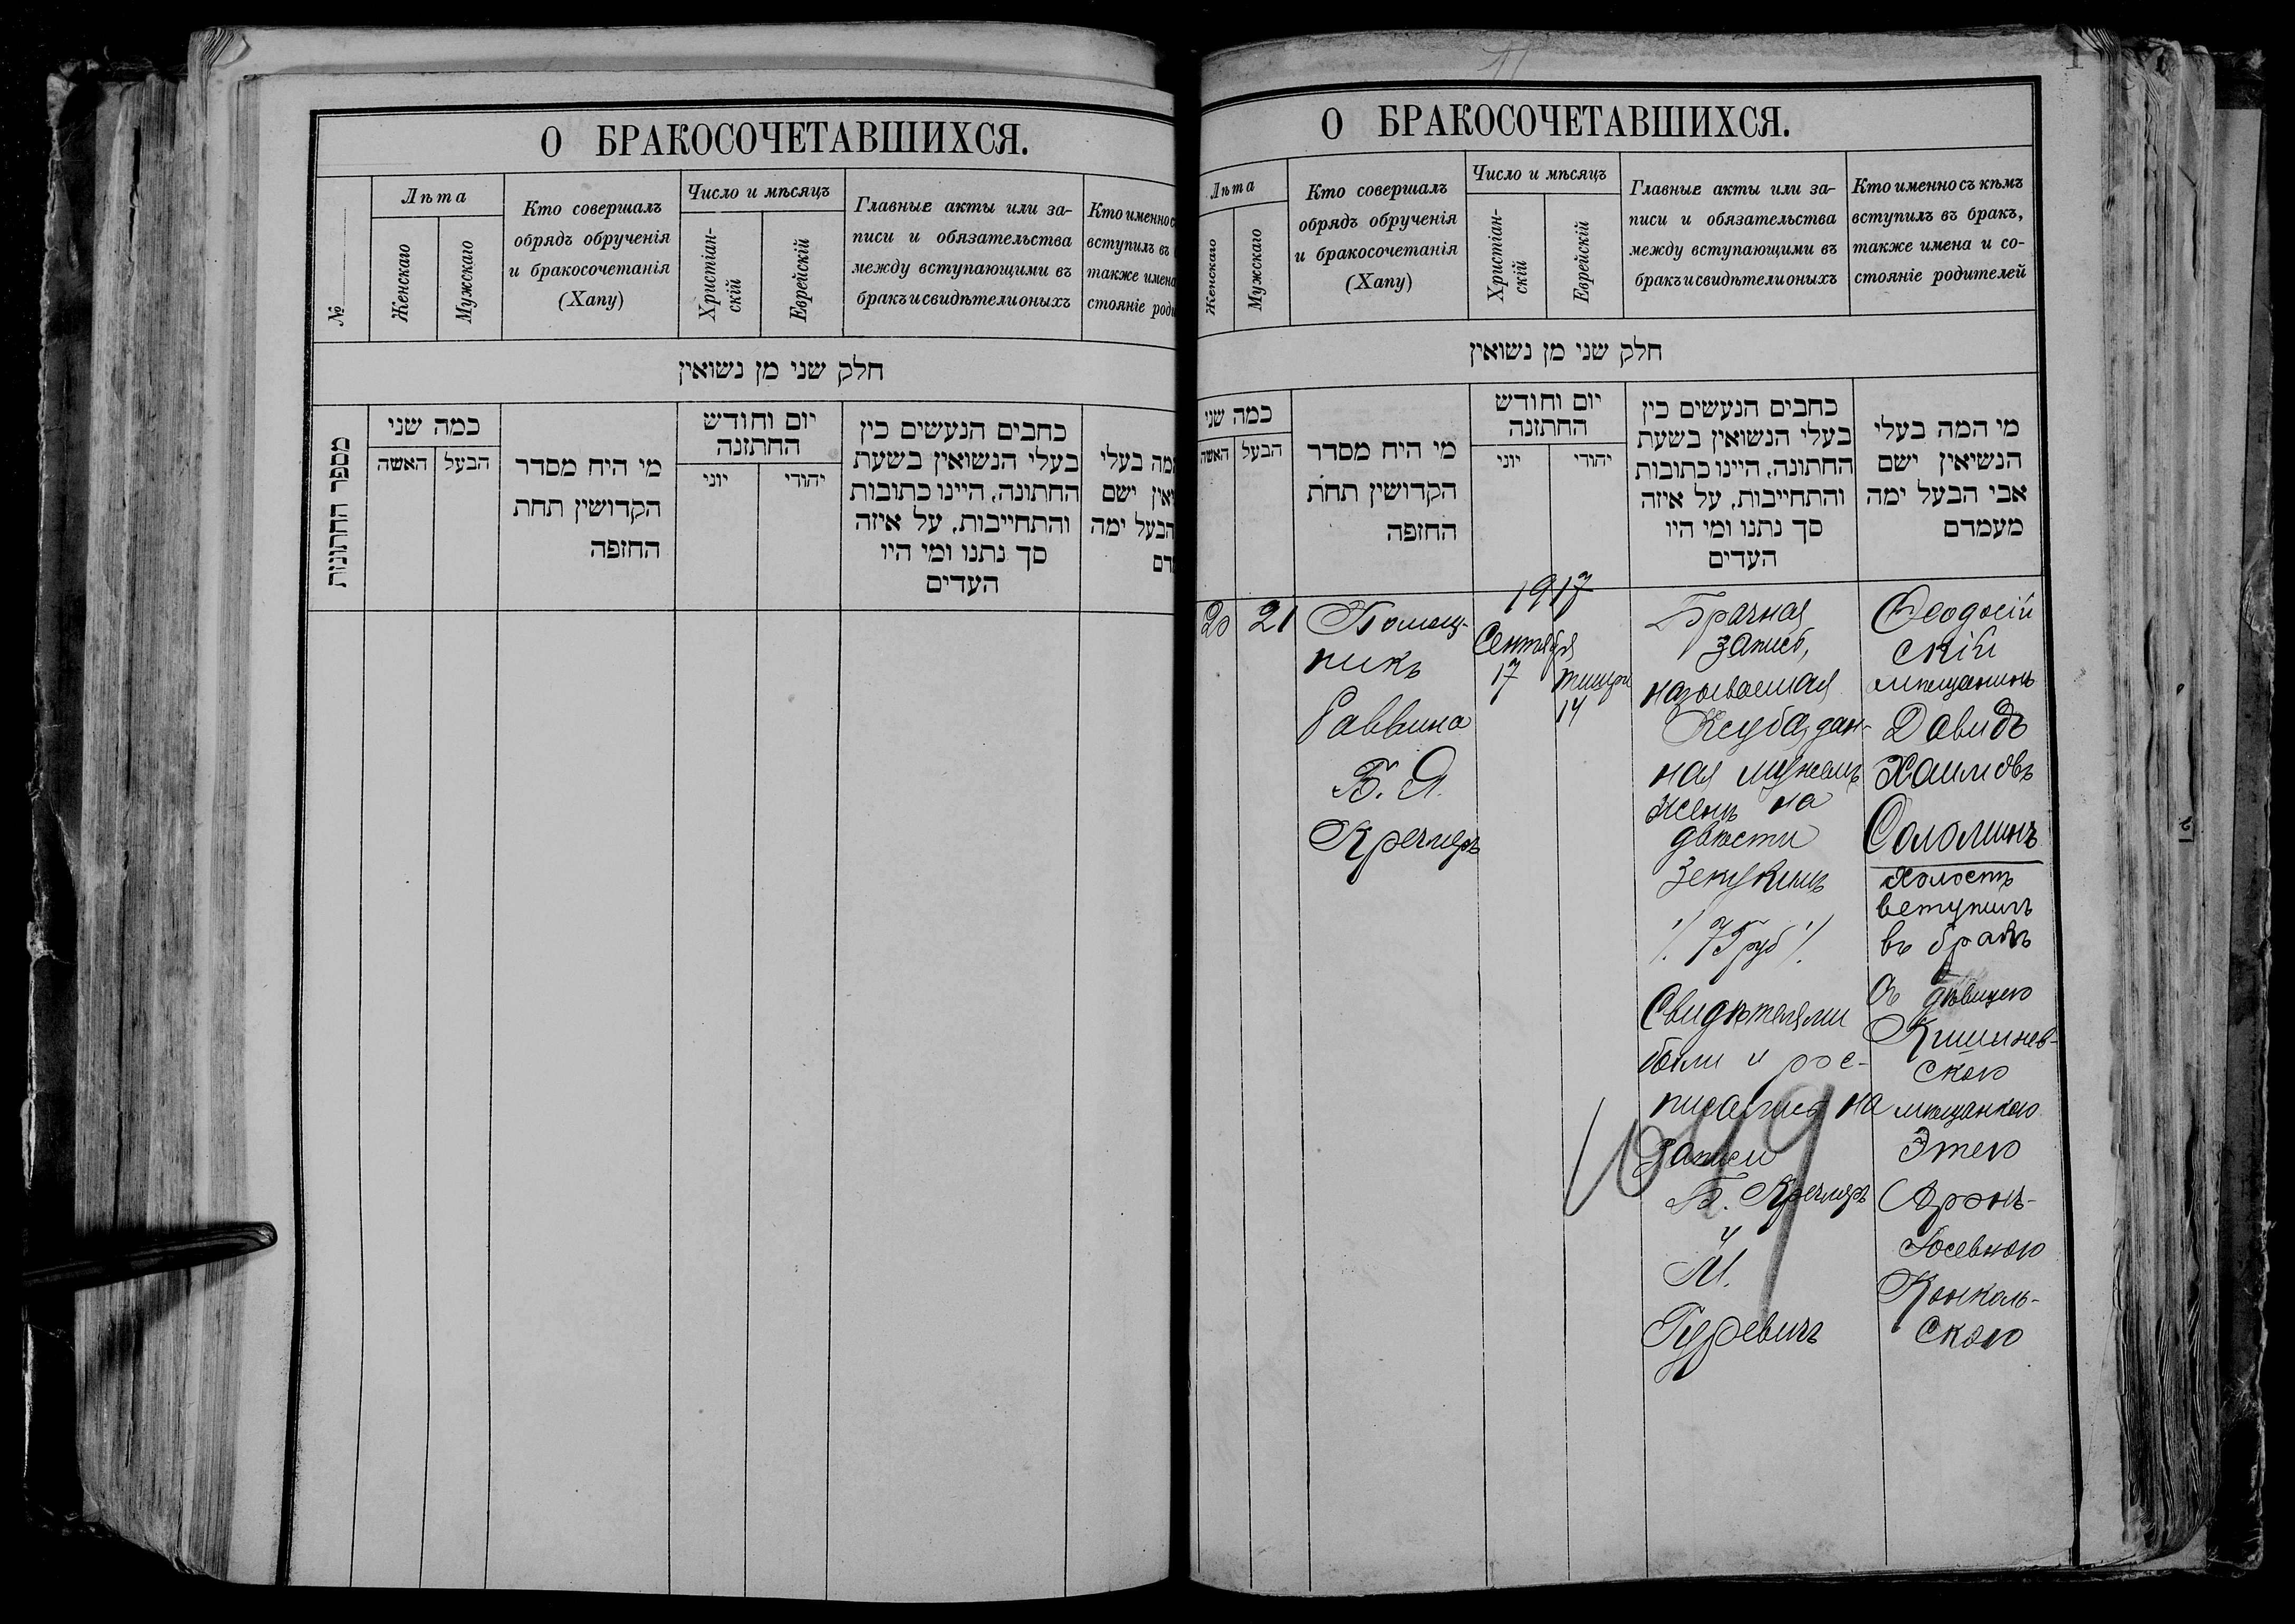 О БРАКОСОЧЕТАВШИХСЯ.
№
Лѣта
Женскаго
Мужскаго
Кто совершалъ
обрядъ обрученія
и бракосочетанія
(Хапу)
Число и мѣсяцъ
Христіан-
скій
Еврейскій
Главные акты или за-
писи и обязательства
между вступающими въ
бракъ и свидѣтели оныхъ
Кто именно с
вступилъ въ
также имена
стояніе роди
חלק שני מן נשואין
מספר החתונות
כמה שני
האשה
הבעל
מי היח מסדר
הקדושין תחת
החופה
יום וחודש
החתונה
יוני
יהודי
כחבים הנעשים כין
בעלי הנשואין בשעת
החתונה, היינו כתובות
והתחייבות, על איזה
סך נתנו ומי היו
העדים
מה בעלי
אין ישם
הבעל ימה
דם
О БРАКОСОЧЕТАВШИХСЯ.
Лѣта
Женскаго
Мужскаго
Кто совершалъ
обрядъ обрученія
и бракосочетанія
(Хапу)
Число и мѣсяцъ
Христіан-
скій
Еврейскій
Главные акты или за-
писи и обязательства
между вступающими въ
бракъ и свидѣтели оныхъ
Кто именно съ кѣмъ
вступилъ въ бракъ,
также имена и со-
стояніе родителей
חלק שני מן נשואין
כמה שני
האשה
הבעל
מי היח מסדר
הקדושין תחת
החופה
יום וחודש
החתונה
יוני
יהודי
כחבים הנעשים כין
בעלי הנשואין בשעת
החתונה, היינו כתובות
והתחייבות, על איזה
סך נתנו ומי היו
העדים
מי המה בעלי
הנשיאין ישם
אבי הבעל ימה
מעמדם
20
21
Помощ-
никъ
Раввина
Б. Я.
Кречмеръ
1917
Сентября
17
тишри
14
Брачная
запись,
называемая
Ксуба, дан-
ная мужемъ
женѣ на
двѣсти
Зекукимъ
/. 75 руб /.
Свидѣтелями
были и рос-
писались на
записи
Б. Кречмеръ
и
М.
Гуревичъ
Ѳеодосій
скій
мѣщанинъ
Давидъ
Хаимовъ
Соломинъ
холостъ
вступилъ
въ бракъ
съ дѣвицею
Кишинев-
скою
мѣщанкою
Этею
Аронъ-
Іосевною
Конколь-
скою